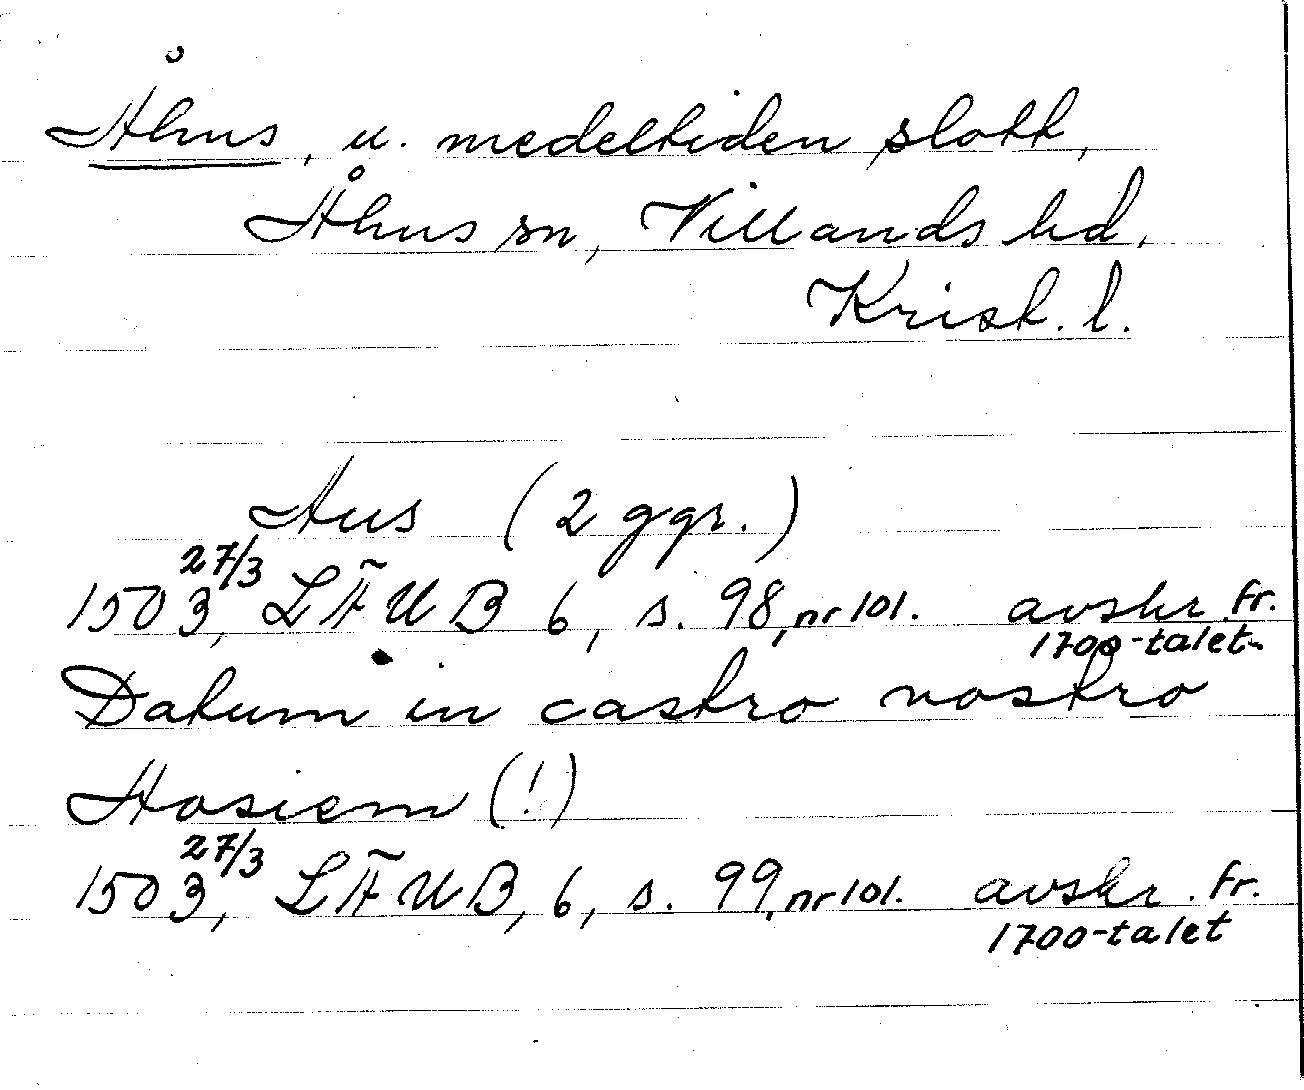 Åhus, u. medeltiden slott,
Åhus sn, Villands hd,
Krist. l.
Aus (2 ggr.)
1503 27/3, LÄUB 6, s. 98, nr 101. avskr. fr.
1700-talet.
Datum in castro nostro
Hosiem (!)
1503 27/3, LÄUB, 6, s. 99, nr 101. avskr. fr.
1700-talet